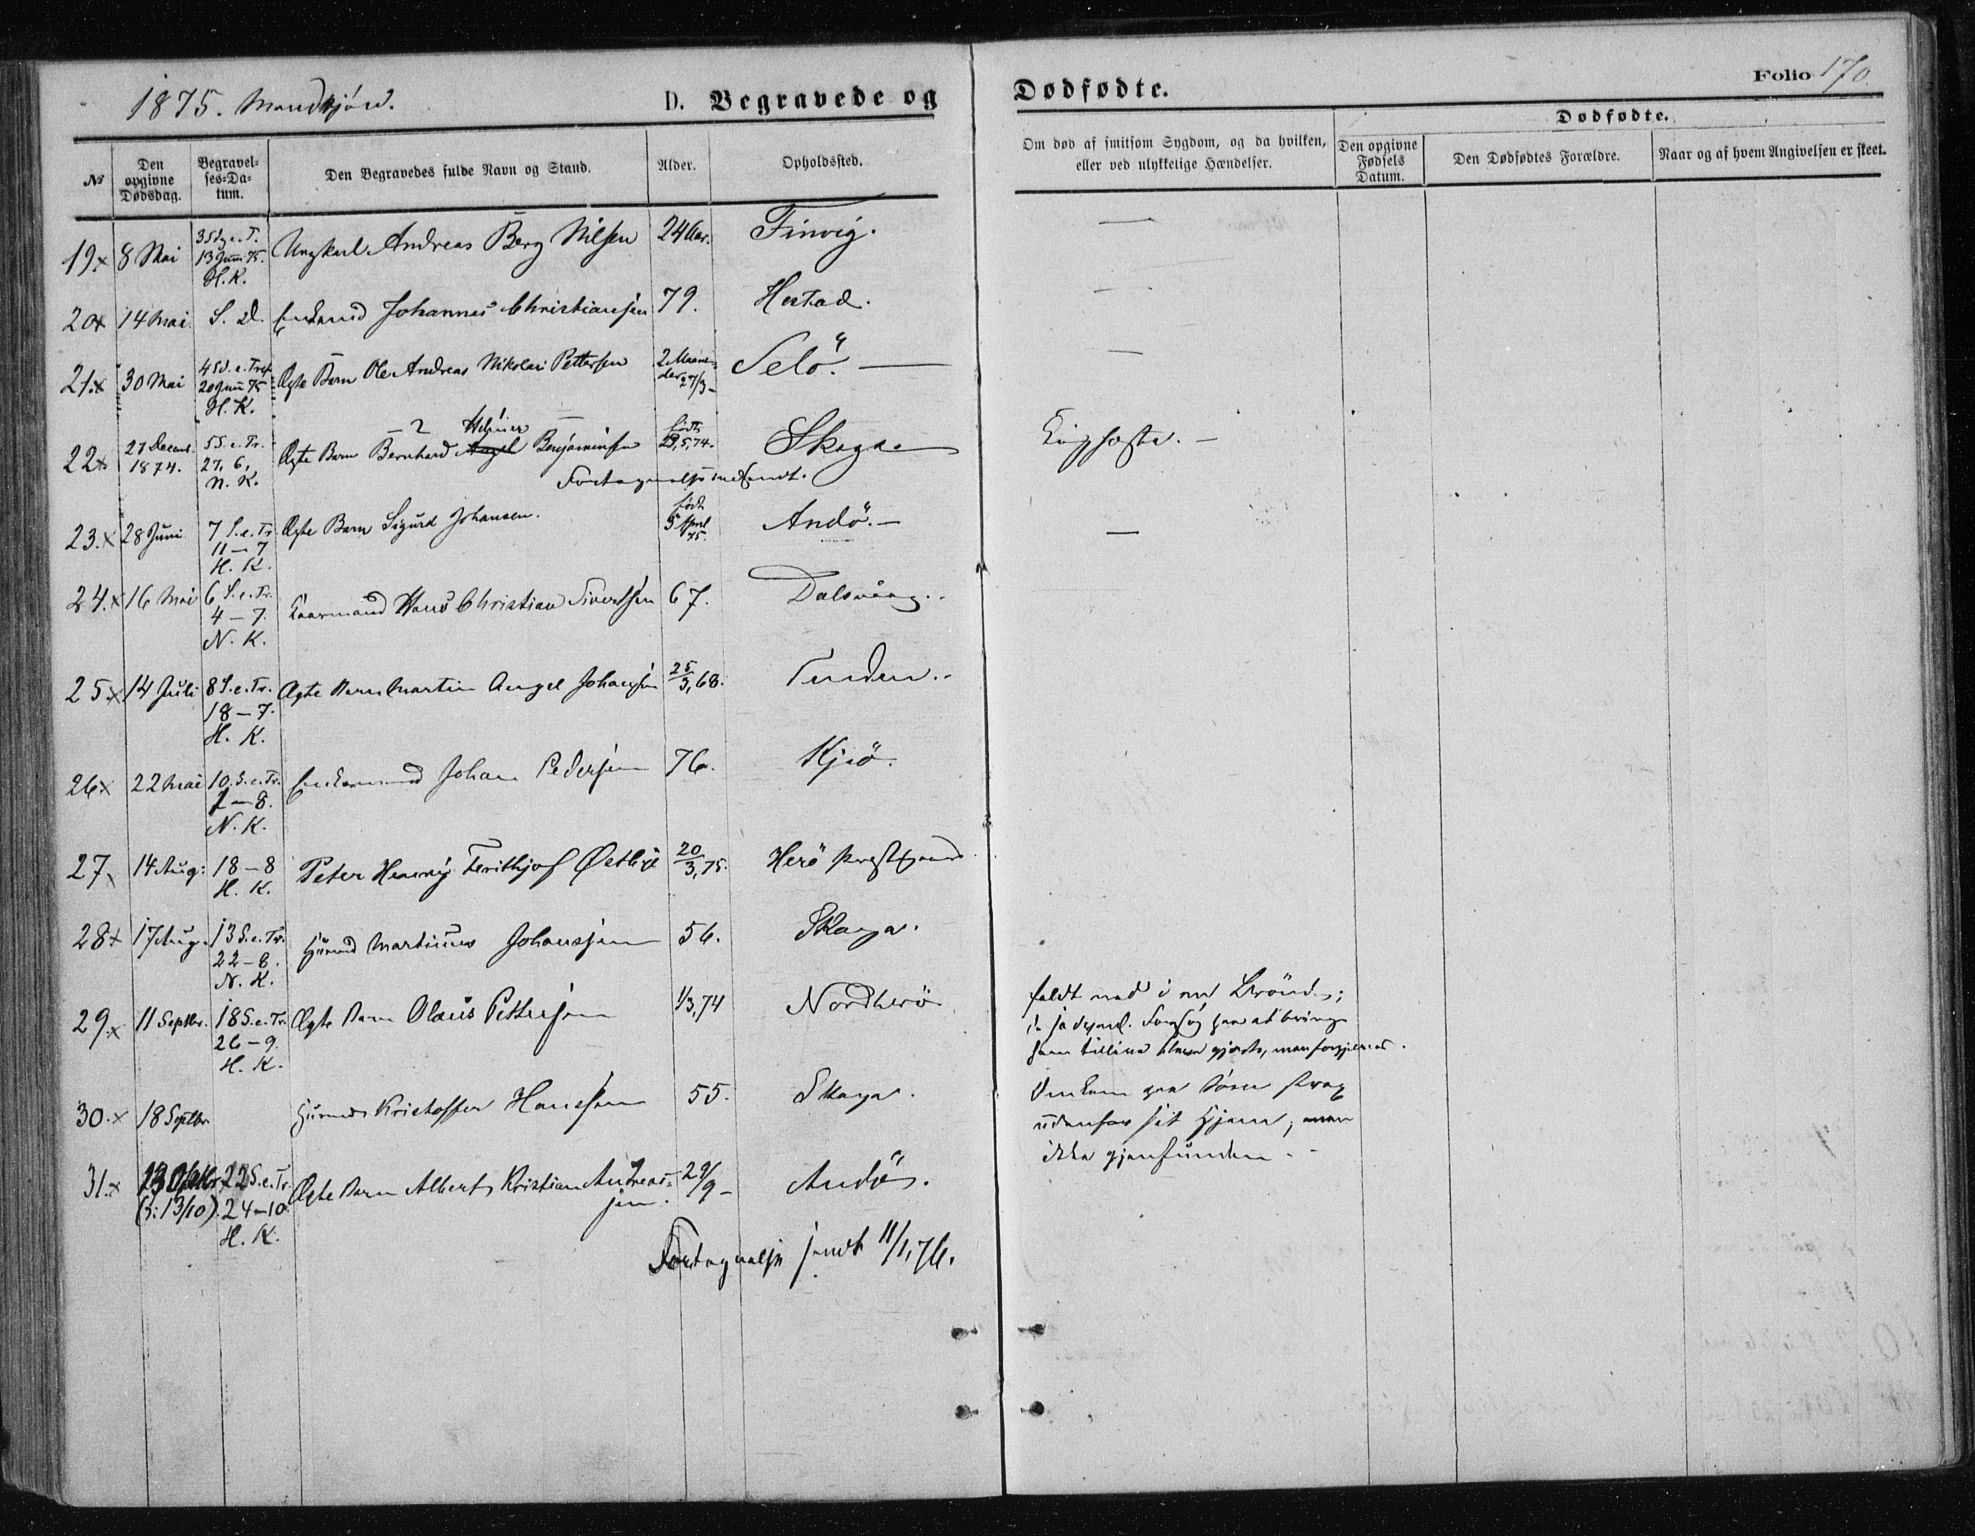 1875. Mandkjön.
D. Begravede og
Dødfødte.
Folio 170.
№
Den opgivne Dødsdag.
Begravelses-Datum.
Den Begravedes fulde Navn og Stand.
Alder.
Opholdssted.
Om død af smitsom Sygdom, og da hvilken, eller ved ulykkelige Hændelser.
Dødfødte.
Den opgivne Fødsels Datum.
Den Dødfødtes Forældre.
Naar og af hvem Angivelsen er skeet.
19.x 8 Mai 3 S. e. T. 13 Juni 75. H. K. Ungkarl Andreas Berg Nilsen 24 Aar. Finvig. —
20x 14 Mai S. D. Enkemd Johannes Christiansen 79. Hestad. —
21.x 30 Mai 4 S. e. Tref. 20 Juni 75 H. K. Ægte Barn Ole Andreas Nikolai Pettersen 2 Maaneder 27/3 – Selö. — —
22x 27 Decemb. 1874. 5 S. e. Tr. 27, 6, N. K. Ægte Barn Bernhard Angel Benjaminsen født 5, 74. Skaga Kighoste. –
Fortegnelse indsendt.
23.x 28 Juni 7 S. e. Tr. 11–7 H. K. Ægte Barn Sigurd Johansen. født 5 April 75. Andö. – —
24.x 16 Mai 6 S. e. Tr. 4–7. N. K. Kaarmand Hans Christian Sivertsen 67. Dalsvaag.
25.x 14 Juli 8 S. e. Tr. 18–7. H. K. Ægte Barn Martin Angel Johansen 25/3, 68. Tenden.
26x 22 Mai 10. S. e. Tr. 1–8. N. K. Enkemand Johan Pedersen 76. Kjiö.
27. 14 Aug: 18–8 H. K. Peter Henrÿ Ferithjof Østbye 20/3, 75. Herö Præstegaard
28x 17 Aug. 13 S. e. Tr. 22–8. N. K. Huusmd Martinus Johansen 56. Skaga.
29.x 11 Septbr. 18 S. e. Tr. 26–9. H. K. Ægte Barn Olaus Pettersen 1/3, 74 Nordherö
faldt ned i en Brönd;
Forsøg paa at bringe
ham tillive blev gjort, men forgjæves.
30.x 18 Septbr. Huusmd Kristoffer Hansen 55. Skaga.
Omkom paa Søen strax
udenfor sit Hjem; men
ikke gjenfunden.
31.x 13 Oktbr. (ɔ: 13/10). 22 S. e. Tr. 24–10. H. K. Ægte Barn Albert Kristian Andreassen. 29/9 – Andö.
Fortegnelse sendt 11/1, 76.